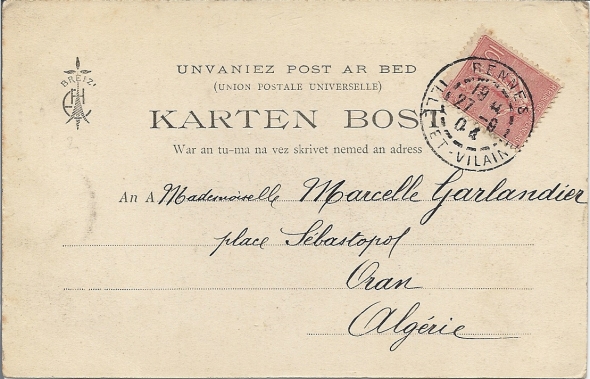 BREIZ
UNVANIEZ POST AR BED
(UNION POSTALE UNIVERSELLE)
KARTEN BOST
War an tu-ma na vez skrivet nemed an adress
An A Mademoiselle Marcelle Garlandier
place Sébastopol
Oran
Algérie
RENNES
27 -9
04
ILLE-ET-VILAINE